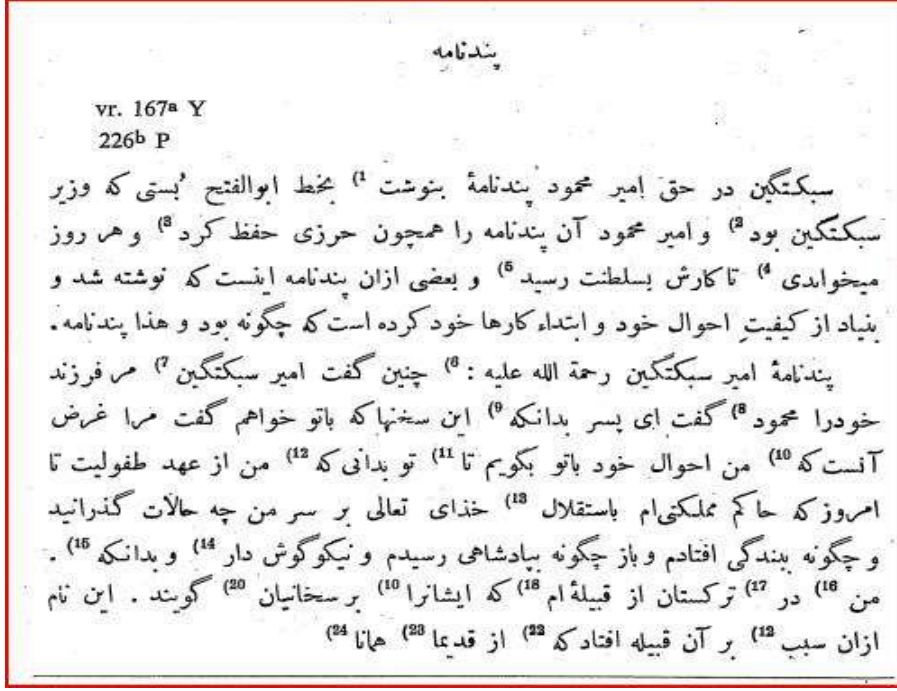 پندنامه
vr. 167a Y
226b P
سبکتگین در حق امیر محمود پندنامهٔ بنوشت (1 بخط ابوالفتح بُستی که وزیر
سبکتگین بود (2 و امیر محمود آن پندنامه را همچون حرزی حفظ کرد (3 و هر روز
میخواندی (4 تا کارش بسلطنت رسید (5 و بعضی ازان پندنامه اینست که نوشته شد و
بنیاد از کیفیتِ احوال خود و ابتداء کارها خود کرده است که چگونه بود و هذا پندنامه.
پندنامهٔ امیر سبکتگین رحمة الله علیه : (6 چنین گفت امیر سبکتگین (7 مر فرزند
خودرا محمود (8 گفت ای پسر بدانکه (9 این سخنها که باتو خواهم گفت مرا غرض
آنست که (10 من احوال خود باتو بگویم تا (11 تو بدانی که (12 من از عهد طفولیت تا
امروز که حاکم مملکتی‌ام باستقلال (13 خذای تعالی بر سر من چه حالات گذرانید
و چگونه ببندگی افتادم و باز چگونه بپادشاهی رسیدم و نیکو گوش دار (14 و بدانکه (15 .
من (16 در (17 ترکستان از قبیلهٔ ام (18 که ایشانرا (10 برسخانیان (20 گویند . این نام
ازان سبب (12 بر آن قبیله افتاد که (22 از قدیما (23 همانا (24